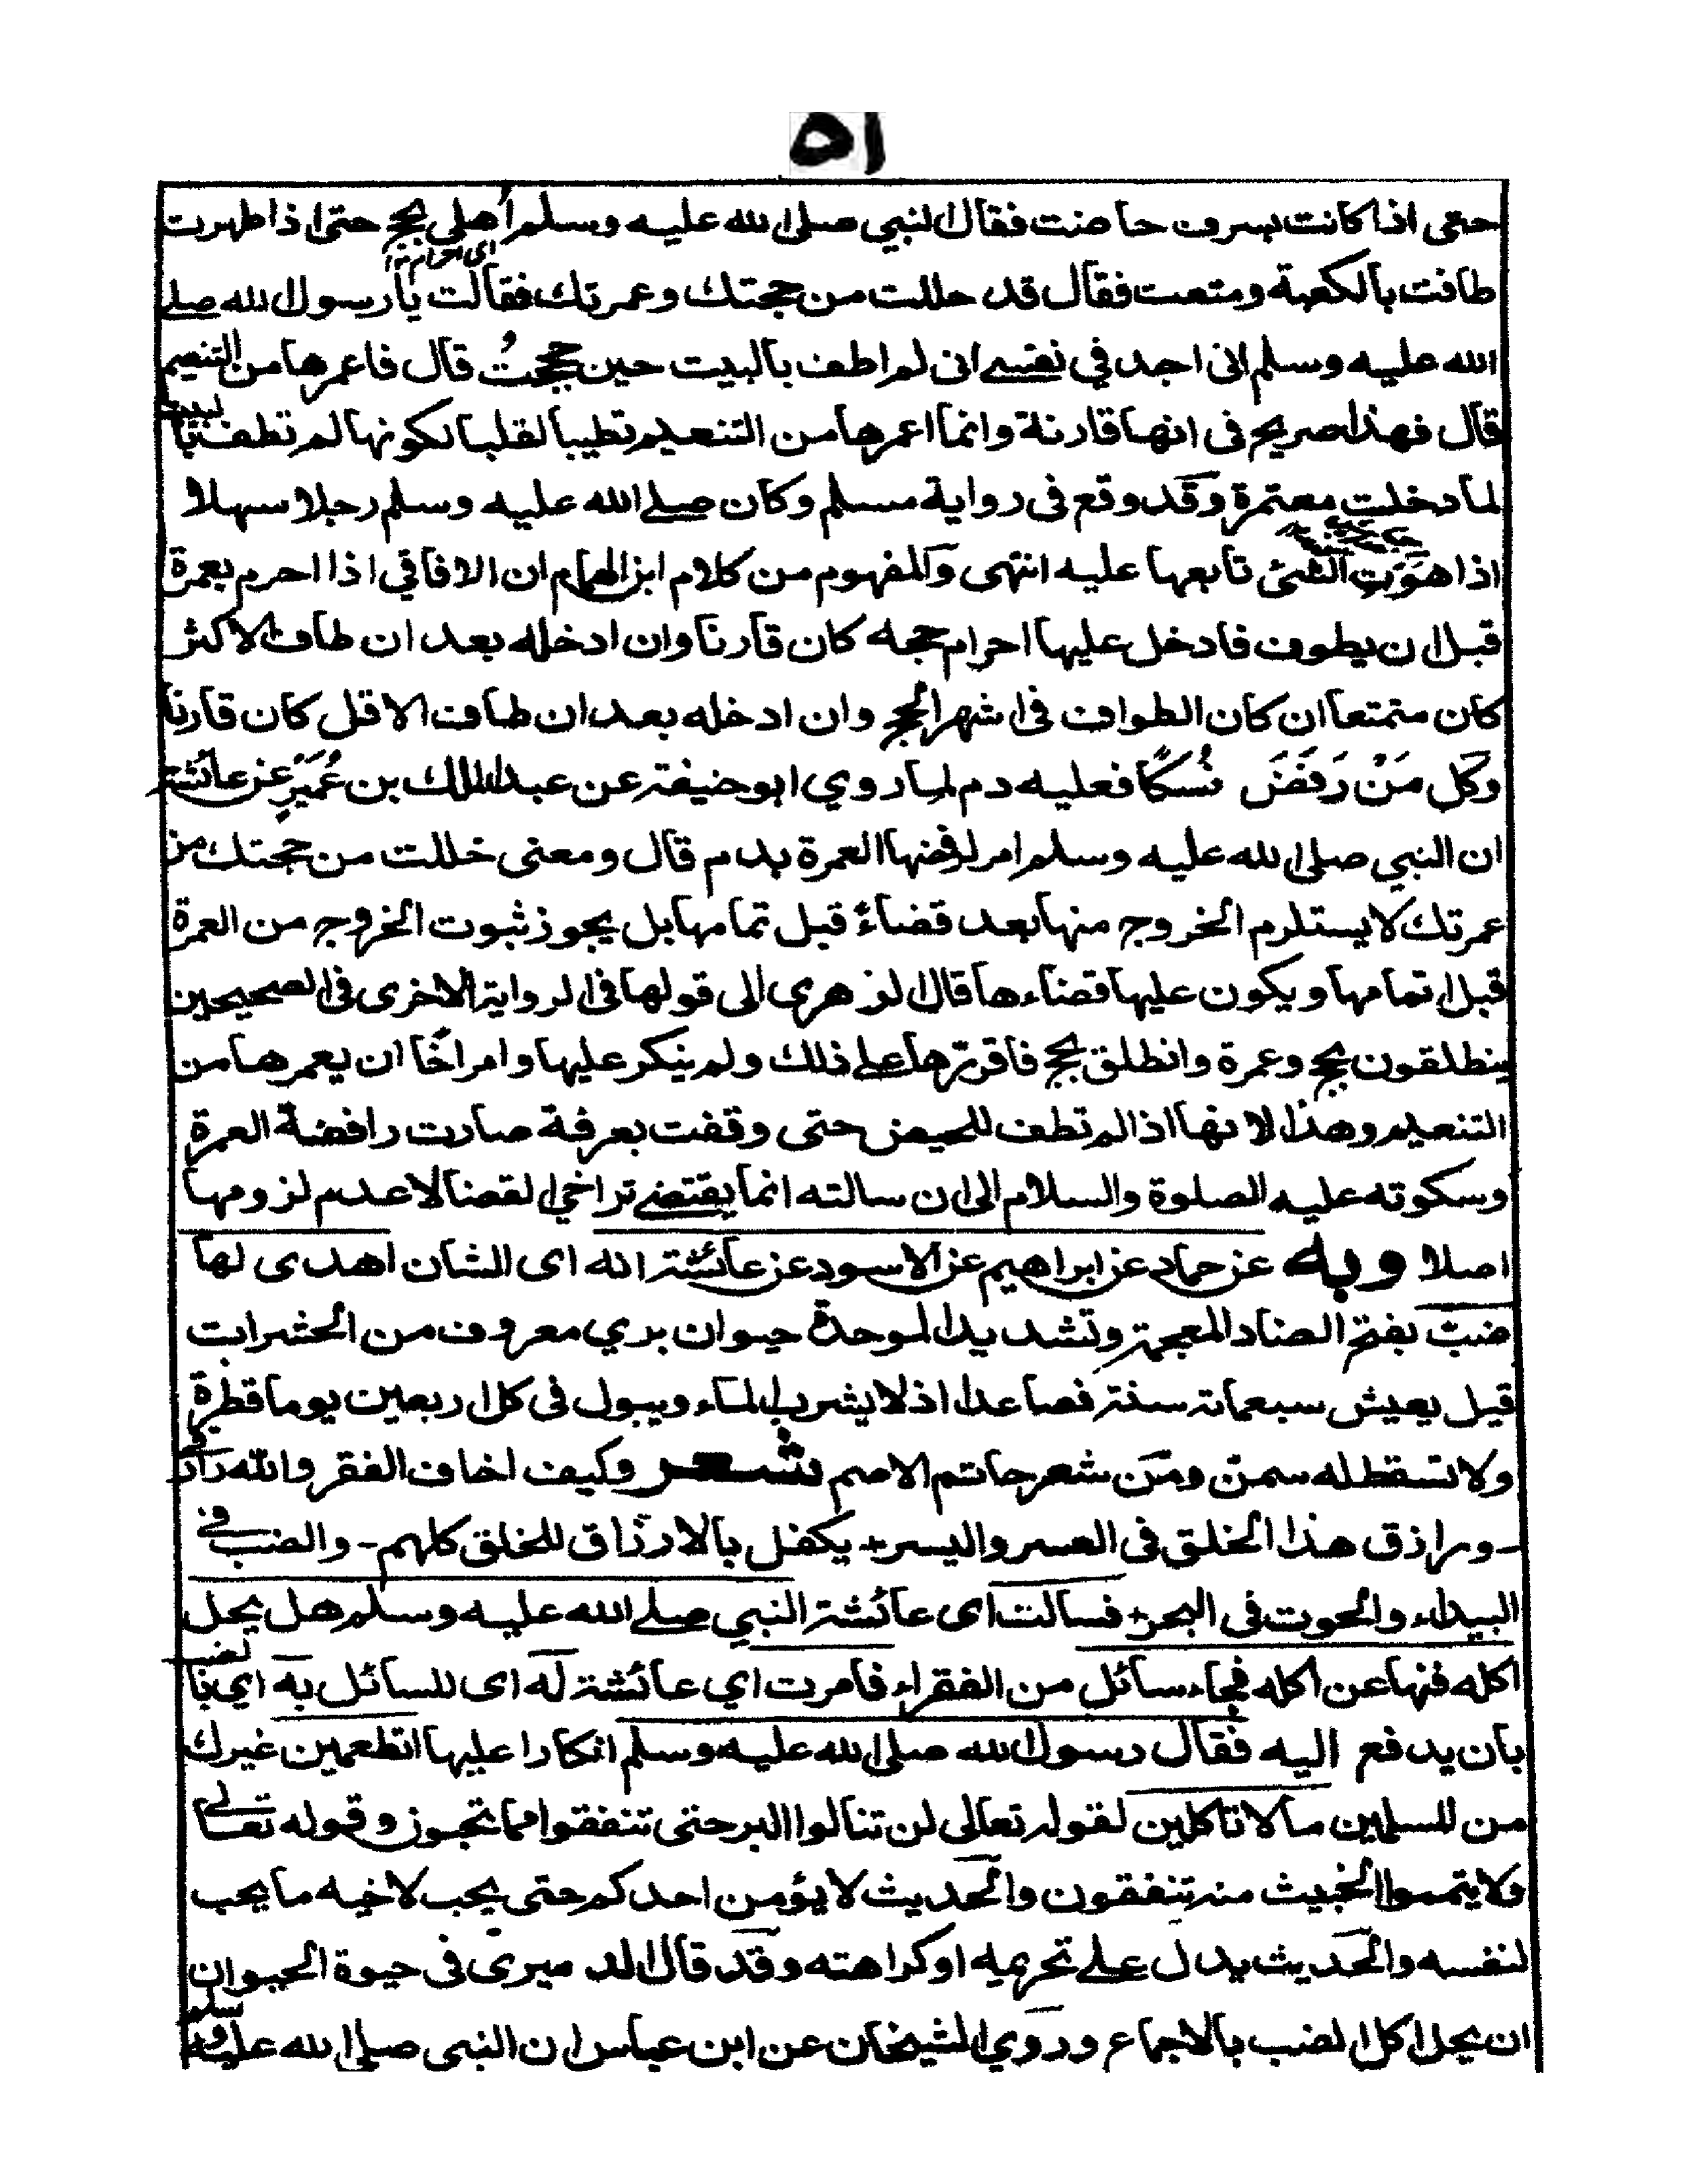 ٥١
حتى اذا كانت بسرف حاضت فقال النبي صلى الله عليه وسلم أهلي بحج حتى اذا طهرت
اى احرام به
طافت بالكعبة ومتعت فقال قد حللت من حجتك وعمرتك فقالت يا رسول الله صلے
الله عليه وسلم انى اجد في نفسے انى لم اطف بالبيت حين حججتُ قال فاعمرها من التنعيم
قال فهذا صريح فى انها قارنة وانما اعمرها من التنعيم تطييبا لقلبها لكونها لم تطف بالبيت
لما دخلت معتمرة وقد وقع فى رواية مسلم وكان صلے الله عليه وسلم رجلا سهلا
اذا هوَيَت الشئ تابعها عليه انتهى والمفهوم من كلام ابن الهمام ان الافاقي اذا احرم بعمرة
قبل ان يطوف فادخل عليها احرام حجه كان قارنا وان ادخله بعد ان طاف الاكثر
كان متمتعا ان كان الطواف فى اشهر الحج وان ادخله بعد ان طاف الاقل كان قارنا
وكل مَنْ رَفَضَ نُسُكًا فعليه دم لما روي ابو حنيفة عن عبد الملك بن عُمَيْرٍ عن عائشة
ان النبي صلى الله عليه وسلم امر لرفضها العمرة بدم قال ومعنى خللت من حجتك من
عمرتك لا يستلرم الخروج منها بعد قضاءً قبل تمامها بل يجوز ثبوت الخروج من العمرة
قبل اتمامها ويكون عليها قضاءها قال الزهرى الى قولها فى الرواية الاخرى فى الصحيحين
ينطلقون بحج وعمرة وانطلق بحج فاقرّها علے ذلك ولم ينكر عليها وامر اخًا ان يعمرها من
التنعيم وهذا لانها اذا لم تطف للحيض حتى وقفت بعرفة صارت رافضة العمرة
وسكوته عليه الصلوة والسلام الى ان سالته انما يقتضے تراخى القضا لا عدم لزومها
اصلا وبه عن حماد عن ابراهيم عن الاسود عن عائشة انه اى الشان اهدى لها
ضبّ بفتح الضاد المعجمة وتشديد الموحدة حيوان بري معروف من الحشرات
قيل يعيش سبعمائة سنة فصاعدا اذ لا يشرب الماء ويبول فى كل اربعين يوما قطرة
ولا تسقط له سنّ ومن شعر حاتم الاصم شعر وكيف اخاف الفقر والله رازق
- ورازق هذا الخلق فى العسر واليسر + يكفل بالارزاق للخلق كلهم - والضب فى
البيداء والحوت فى البحر + فسالت اى عائشة النبي صلے الله عليه وسلم هل يحل
اكله فنها عن اكله فجاء سائل من الفقراء فامرت اي عائشة له اى للسائل به اي بالضب
بان يدفع اليه فقال رسول الله صلى الله عليه وسلم انكارا عليها اتطعمين غيرك
من المسلمين ما لا تاكلين لقوله تعالى لن تنالوا البر حتى تنفقوا مما تحبون وقوله تعالے
ولا يتمموا الخبيث منه تنفقون والحديث لا يؤمن احدكم حتى يحب لاخيه ما يحب
لنفسه والحديث يدل علے تحريمه او كراهته وقد قال الدميرى فى حيوة الحيوان
ان يحل اكل الضب بالاجماع وروي الشيخان عن ابن عباس ان النبى صلى الله عليه وسلم